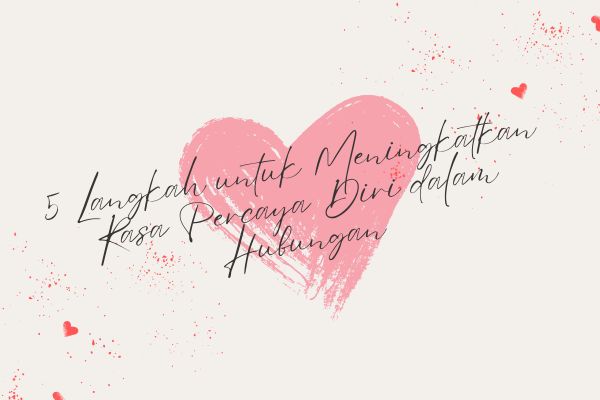 5 Langkah untuk Meningkatkan
Rasa Percaya Diri dalam
Hubungan